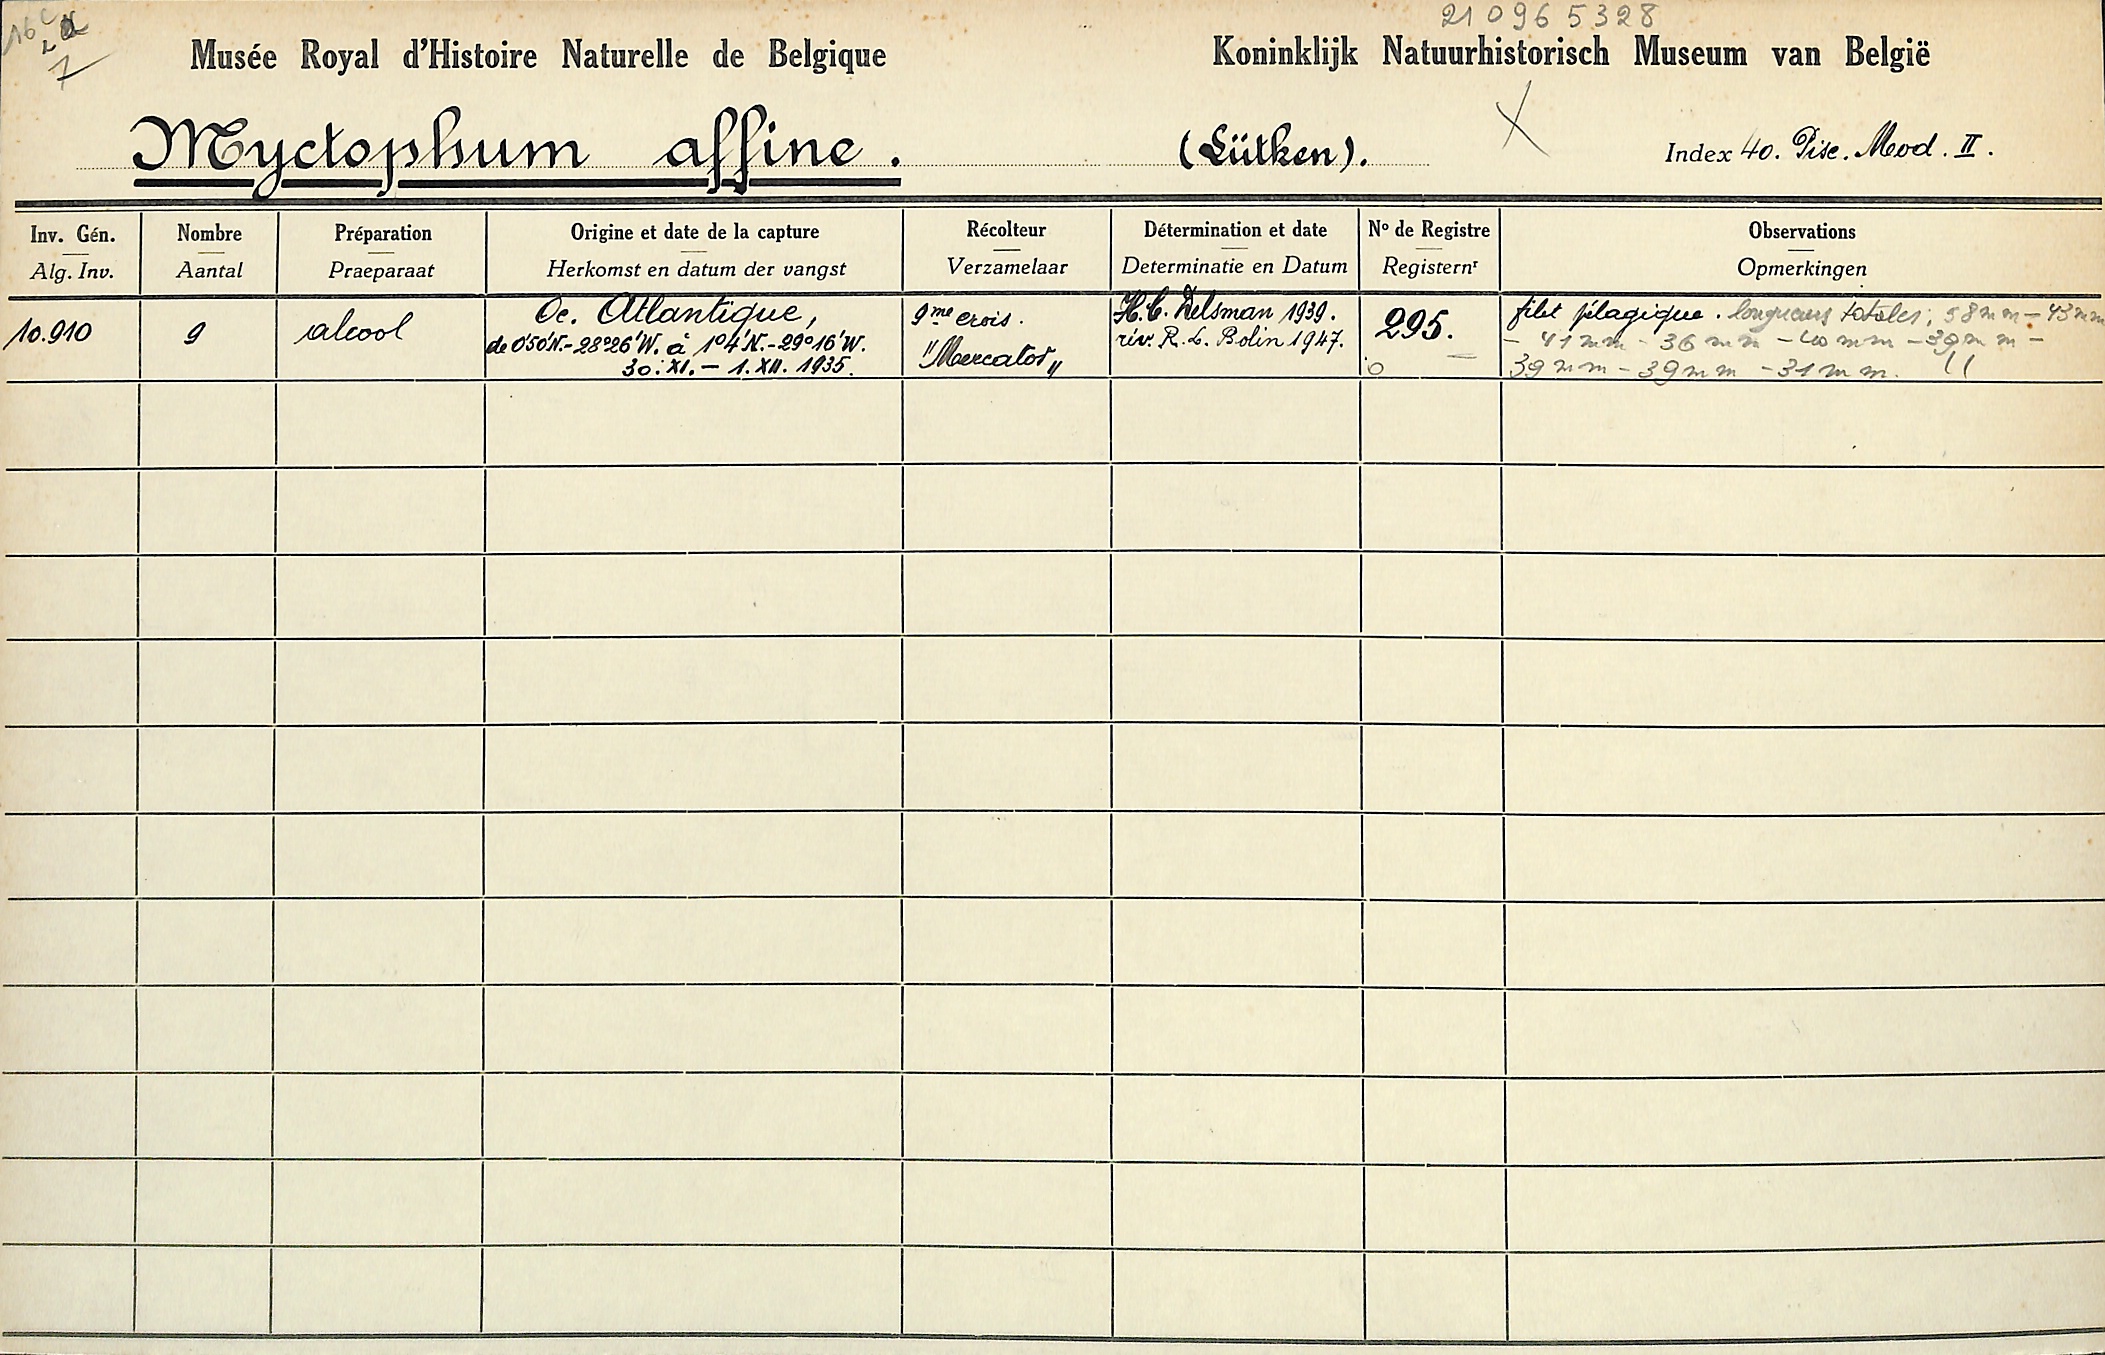 21 096 5328
Musée Royal d'Histoire Naturelle de Belgique
Koninklijk Natuurhistorisch Museum van België
Myctophum affine.
(Lütken).
Index 40. Pisc. Mod. II.
Inv. Gén.
Alg. Inv.
Nombre
Aantal
Préparation
Praeparaat
Origine et date de la capture
Herkomst en datum der vangst
Récolteur
Verzamelaar
Détermination et date
Determinatie en Datum
No de Registre
Registernr
Observations
Opmerkingen
10.910
9
alcool
Oc. Atlantique,
de 0°50'N.-28°26'W. à 1°4'N.-29°16'W.
30.XI.- 1.XII. 1935.
9me crois.
"Mercator"
H.C. Delsman 1939.
rév. R.L. Bolin 1947.
295.
filet pélagique. longueurs totales; 58mm - 43mm
- 41mm - 36mm - 40mm - 39mm -
39mm - 39mm - 31mm.